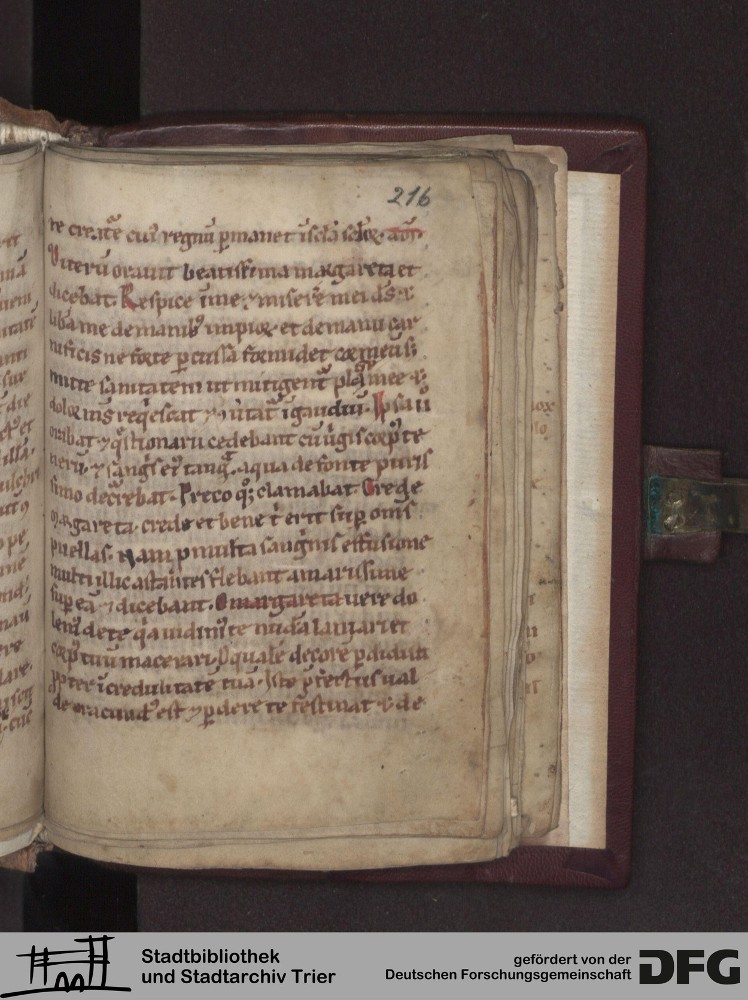 216
te creatē cui' regnū ꝑmanet ī sc̄la sc̄loꝝ. am̄
Iterū orauit beatissima margareta et
dicebat. Respice ī me. ⁊ miserē mei d̄s. ⁊
liba me de manib' impioꝝ et de manu car
nificis ne forte ꝑcussa formidet cor meū.
mitte sanitatem ut mitigent̄ plage mee. ⁊
dolor ms̄ reqescat ⁊ ītat ī gaudiū. Ipsa ū
orabat ⁊ q̄stionarii cedebant
nerū. ⁊ sangis ei' tanq̄ aqua de fonte puris
simo decrebat. Preco q; clamabat. Crede
margareta. crede et bene t̄ erit sup om̄s
puellas. Nam p multa sangnis effusione
multi illic astantes flebant amarissime
sup eā. ⁊ dicebant. O margareta uere do
lem' de te qa uidim' te nudā laniari et
corp' tuū macerari. O qualē decorē ꝑdidisti
ꝓpter īcredulitatē tuā. Iste p̄fectus ual
de iracund' est ⁊ ꝑdere te festinat. ⁊ de
Stadtbibliothek
und Stadtarchiv Trier
gefördert von der
Deutschen Forschungsgemeinschaft
DFG